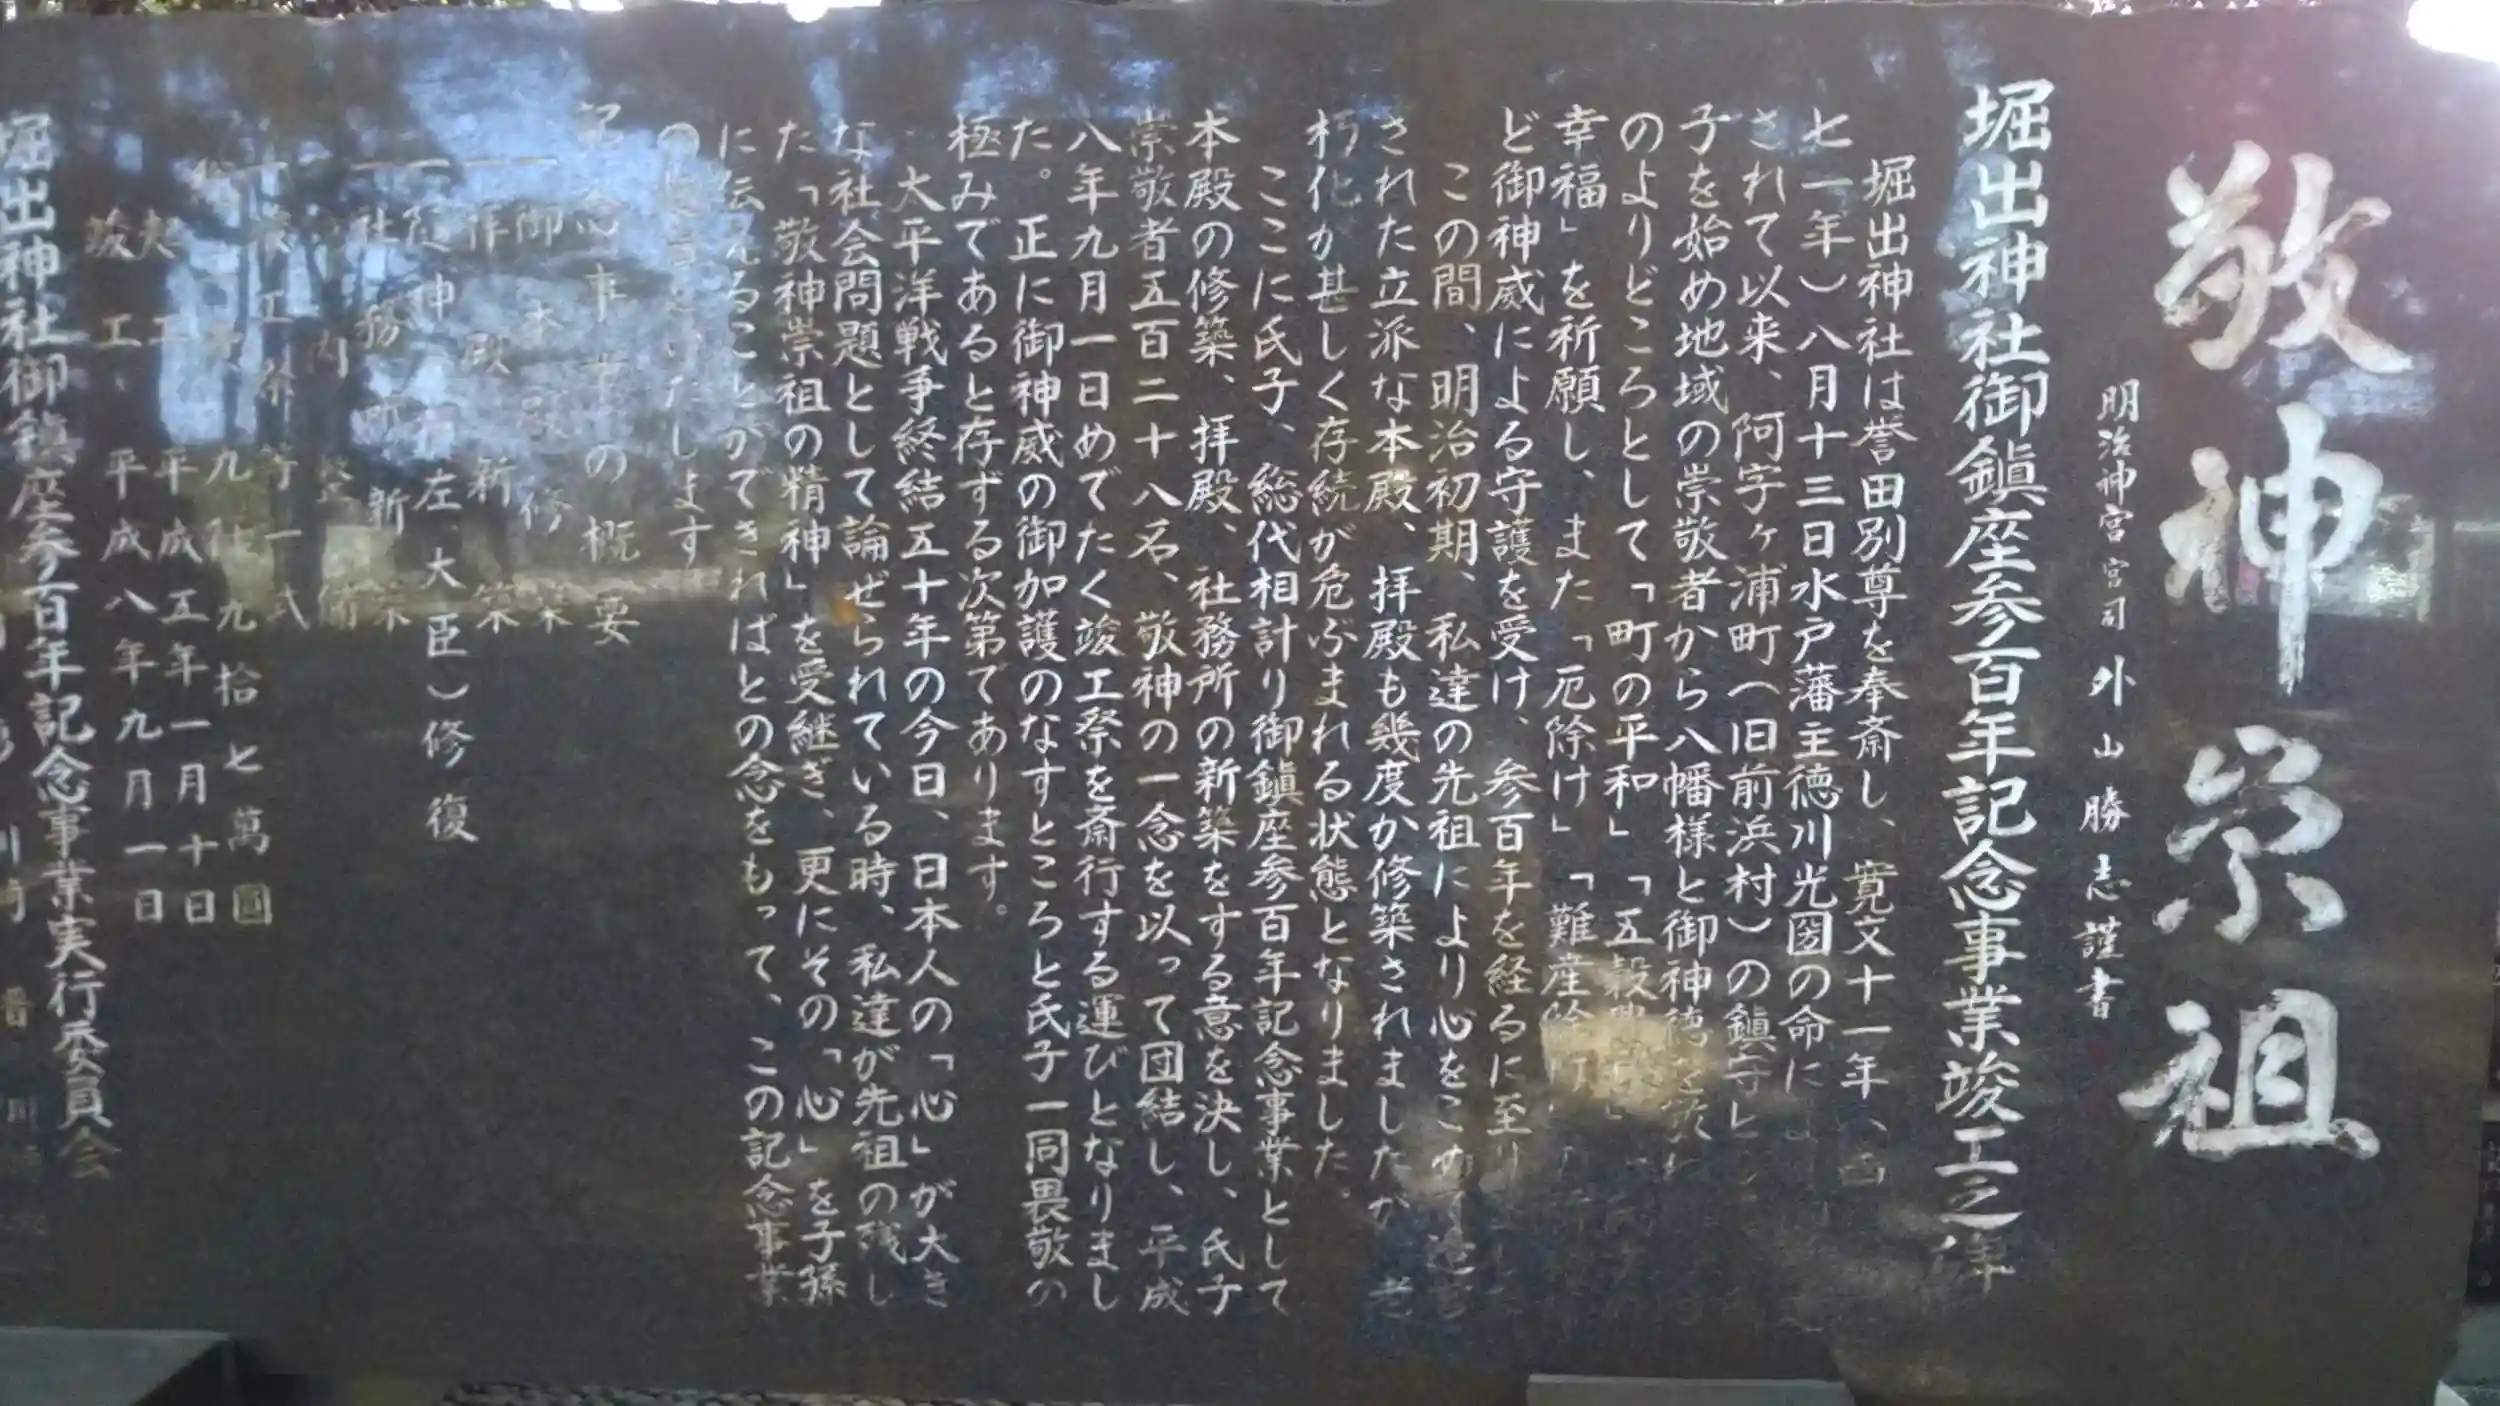 敬神崇祖
明治神宮宮司 外山勝志謹書
堀出神社御鎮座参百年記念事業竣工之碑
堀出神社は誉田別尊を奉斎し、寛文十一年、(西
七一年)八月十三日水戸藩主徳川光圀の命によ
されて以来、阿字ヶ浦町(旧前浜村)の鎮守と
子を始め地域の崇敬者から八幡様と御神徳を
のよりどころとして「町の平和」「五穀
幸福」を祈願し、また「厄除け」「難産除け
ど御神威による守護を受け、参百年を経るに至り
この間、明治初期、私達の先祖により心をこめて造
された立派な本殿、拝殿も幾度か修築されましたが 老
朽化が甚しく存続が危ぶまれる状態となりました、
ここに氏子、総代相計り御鎮座参百年記念事業として
本殿の修築、拝殿、社務所の新築をする意を決し、氏子
崇敬者五百二十八名、敬神の一念を以って団結し、平成
八年九月一日めでたく竣工祭を斎行する運びとなりまし
た。正に御神威の御加護のなすところと氏子一同畏敬の
極みであると存ずる次第であります。
太平洋戦争終結五十年の今日、日本人の「心」が大き
な社会問題として論ぜられている時、私達が先祖の残し
た「敬神崇祖の精神」を受継ぎ、更にその「心」を子孫
に伝えることができればとの念をもって、この記念事業
の いたします
記念事業の概要
一御本殿修築
一拝殿新築
一随神 左、大臣)修復
一社務所新築
一 内整備
一竣工祭等一式
九 九拾七萬圓
起工 平成五年一月十日
竣工 平成八年九月一日
堀出神社御鎮座参百年記念事業実行委員会